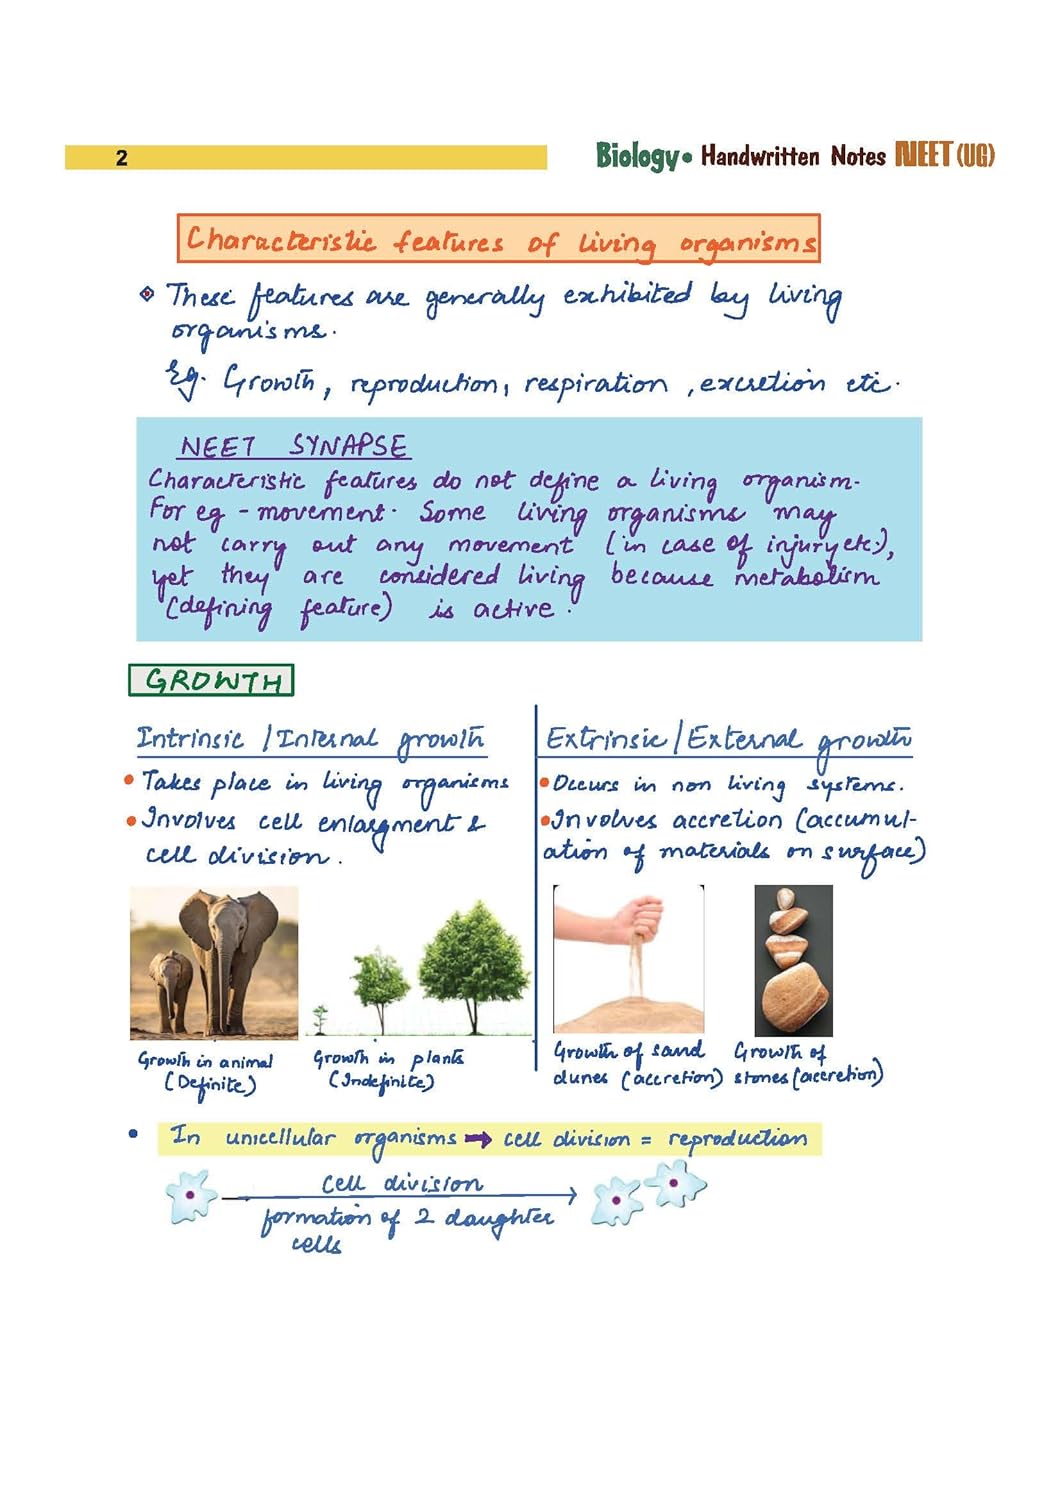 2
Biology• Handwritten Notes NEET (UG)
Characteristic features of living organisms
These features are generally exhibited by living
organisms.
Eg. Growth, reproduction, respiration, excretion etc.
NEET SYNAPSE
Characteristic features do not define a living organism.
For eg - movement. Some living organisms may
not carry out any movement (in case of injury etc.),
yet they are considered living because metabolism
(defining feature) is active.
GROWTH
Intrinsic / Internal growth
• Takes place in living organisms
• Involves cell enlargment &
cell division.
Extrinsic / External growth
• Occurs in non living systems.
• Involves accretion (accumul-
ation of materials on surface)
Growth in animal
(Definite)
Growth in plants
(Indefinite)
Growth of sand
dunes (accretion)
Growth of
stones (accretion)
• In unicellular organisms ➡ cell division = reproduction
cell division
formation of 2 daughter
cells